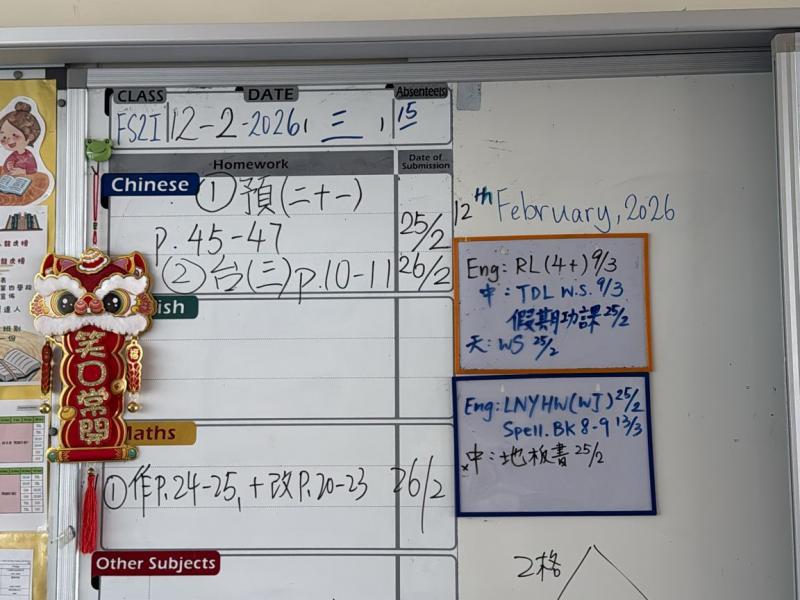 CLASS DATE Absenteets
FS2I 12-2-2026, 三, 15
Homework Date of Submission
Chinese ①預(二十一)
p. 45-47 25/2
②台(三)p.10-11 26/2
ish
Maths
①作P.24-25, +改P.20-23 26/2
Other Subjects
笑口常開
12th February, 2026
Eng: RL(4+) 9/3
中: TDL W.S. 9/3
假期功課 25/2
天: WS 25/2
Eng: LNYHW(WJ) 25/2
Spell. BK 8-9 13/3
×中: 地板書 25/2
2格